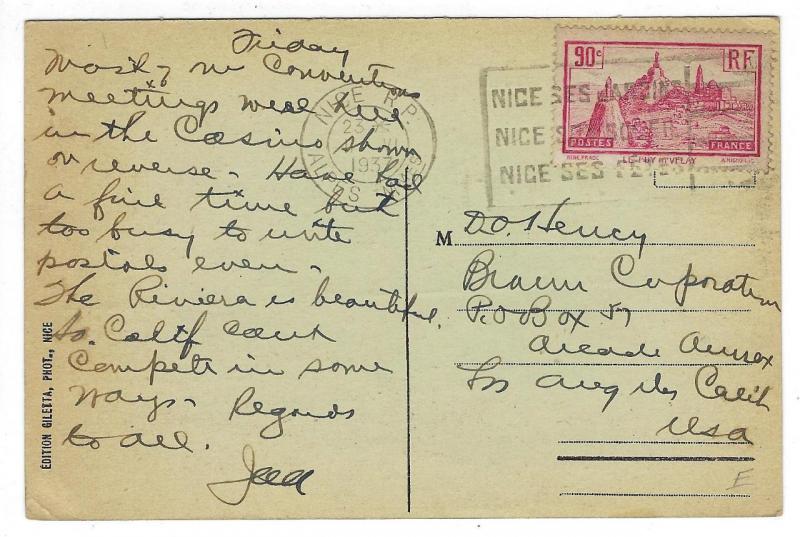 Friday
Most of Convention
meetings were here
in the Casino shown
on reverse - Have had
a fine time but
too busy to write
postals even -
The Riviera is beautiful.
So. Calif can't
compete in some
ways - Regards
to all.
ÉDITION GILETTA, PHOT., NICE
NICE R.P.
1937
90c RF
POSTES FRANCE
LE PUY EN VELAY
NICE SES
NICE SES
NICE SES
M D.O. Hency
Braun Corporation
P.O Box 57
Arcade Annex
Los Angeles Calif
USA
E